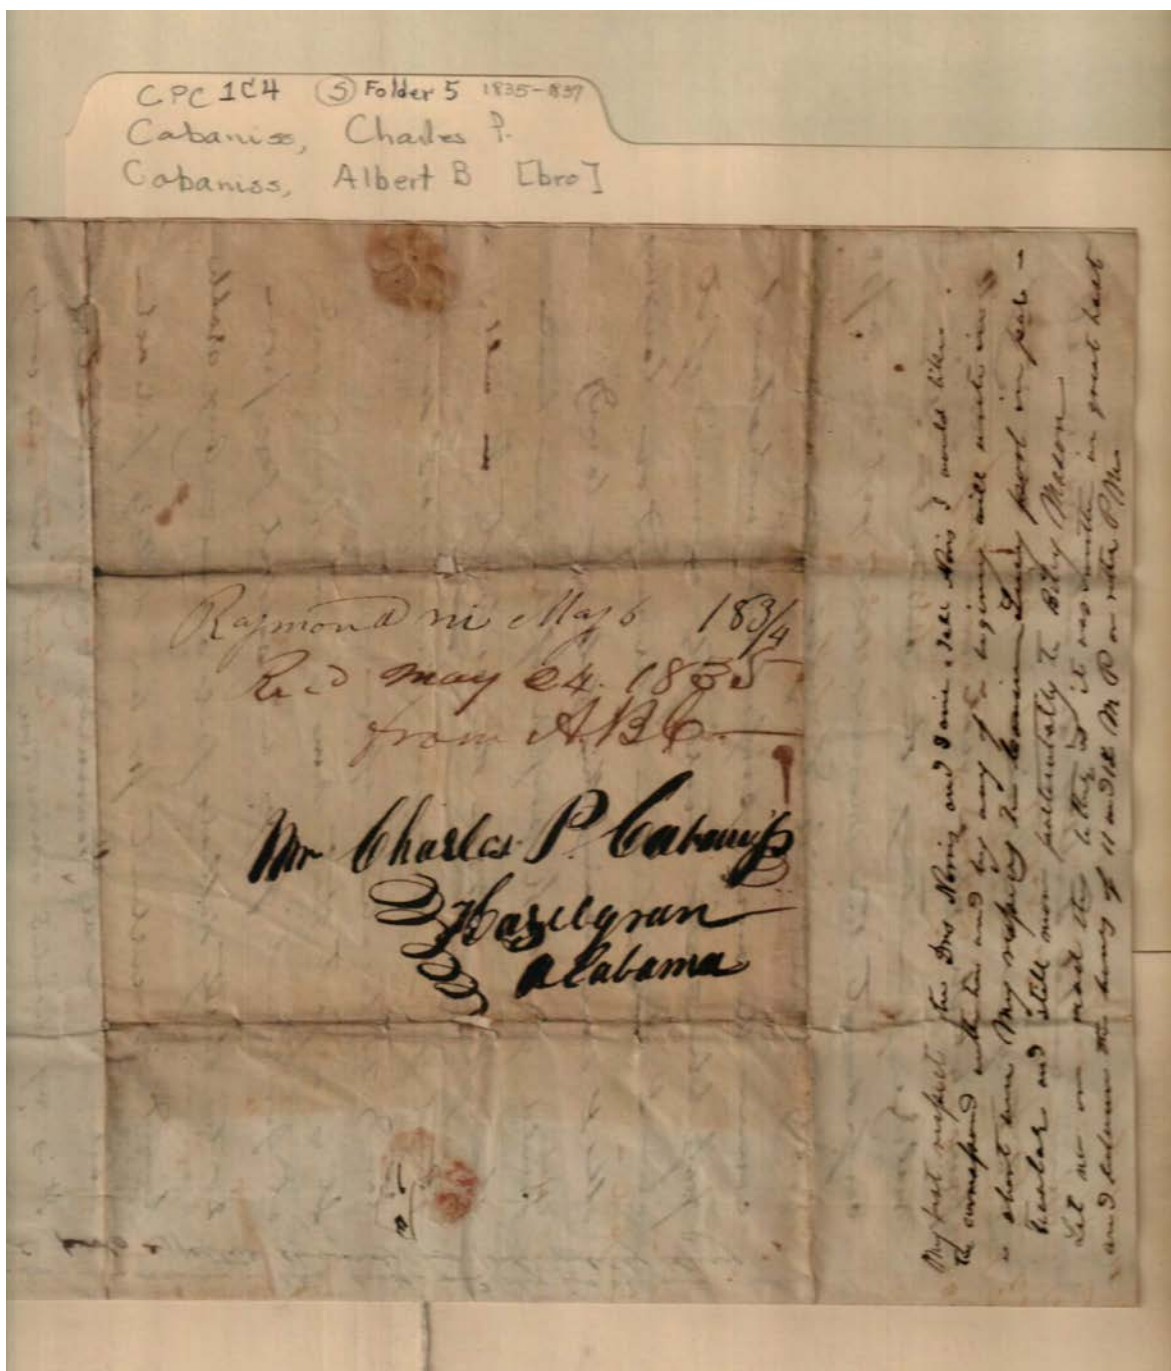 CPC 1C4 (5) Folder 5 1835-1837
Cabaniss, Charles P.
Cabaniss, Albert B [bro]
Raymond mi May 6 183/4
Rec'd may 24. 1835
from A.B.C.
Mr Charles P. Cabaniss
Hazelgreen
Alabama
My best respects to Norris and I would like
to correspond with him and by way of a begining will write in
a short time My respects to Cousin in par-
ticular and still more particularly to Billy Mason
Let no one read this letter as it was written in great hast
and between the hours of 11 and 12 P M